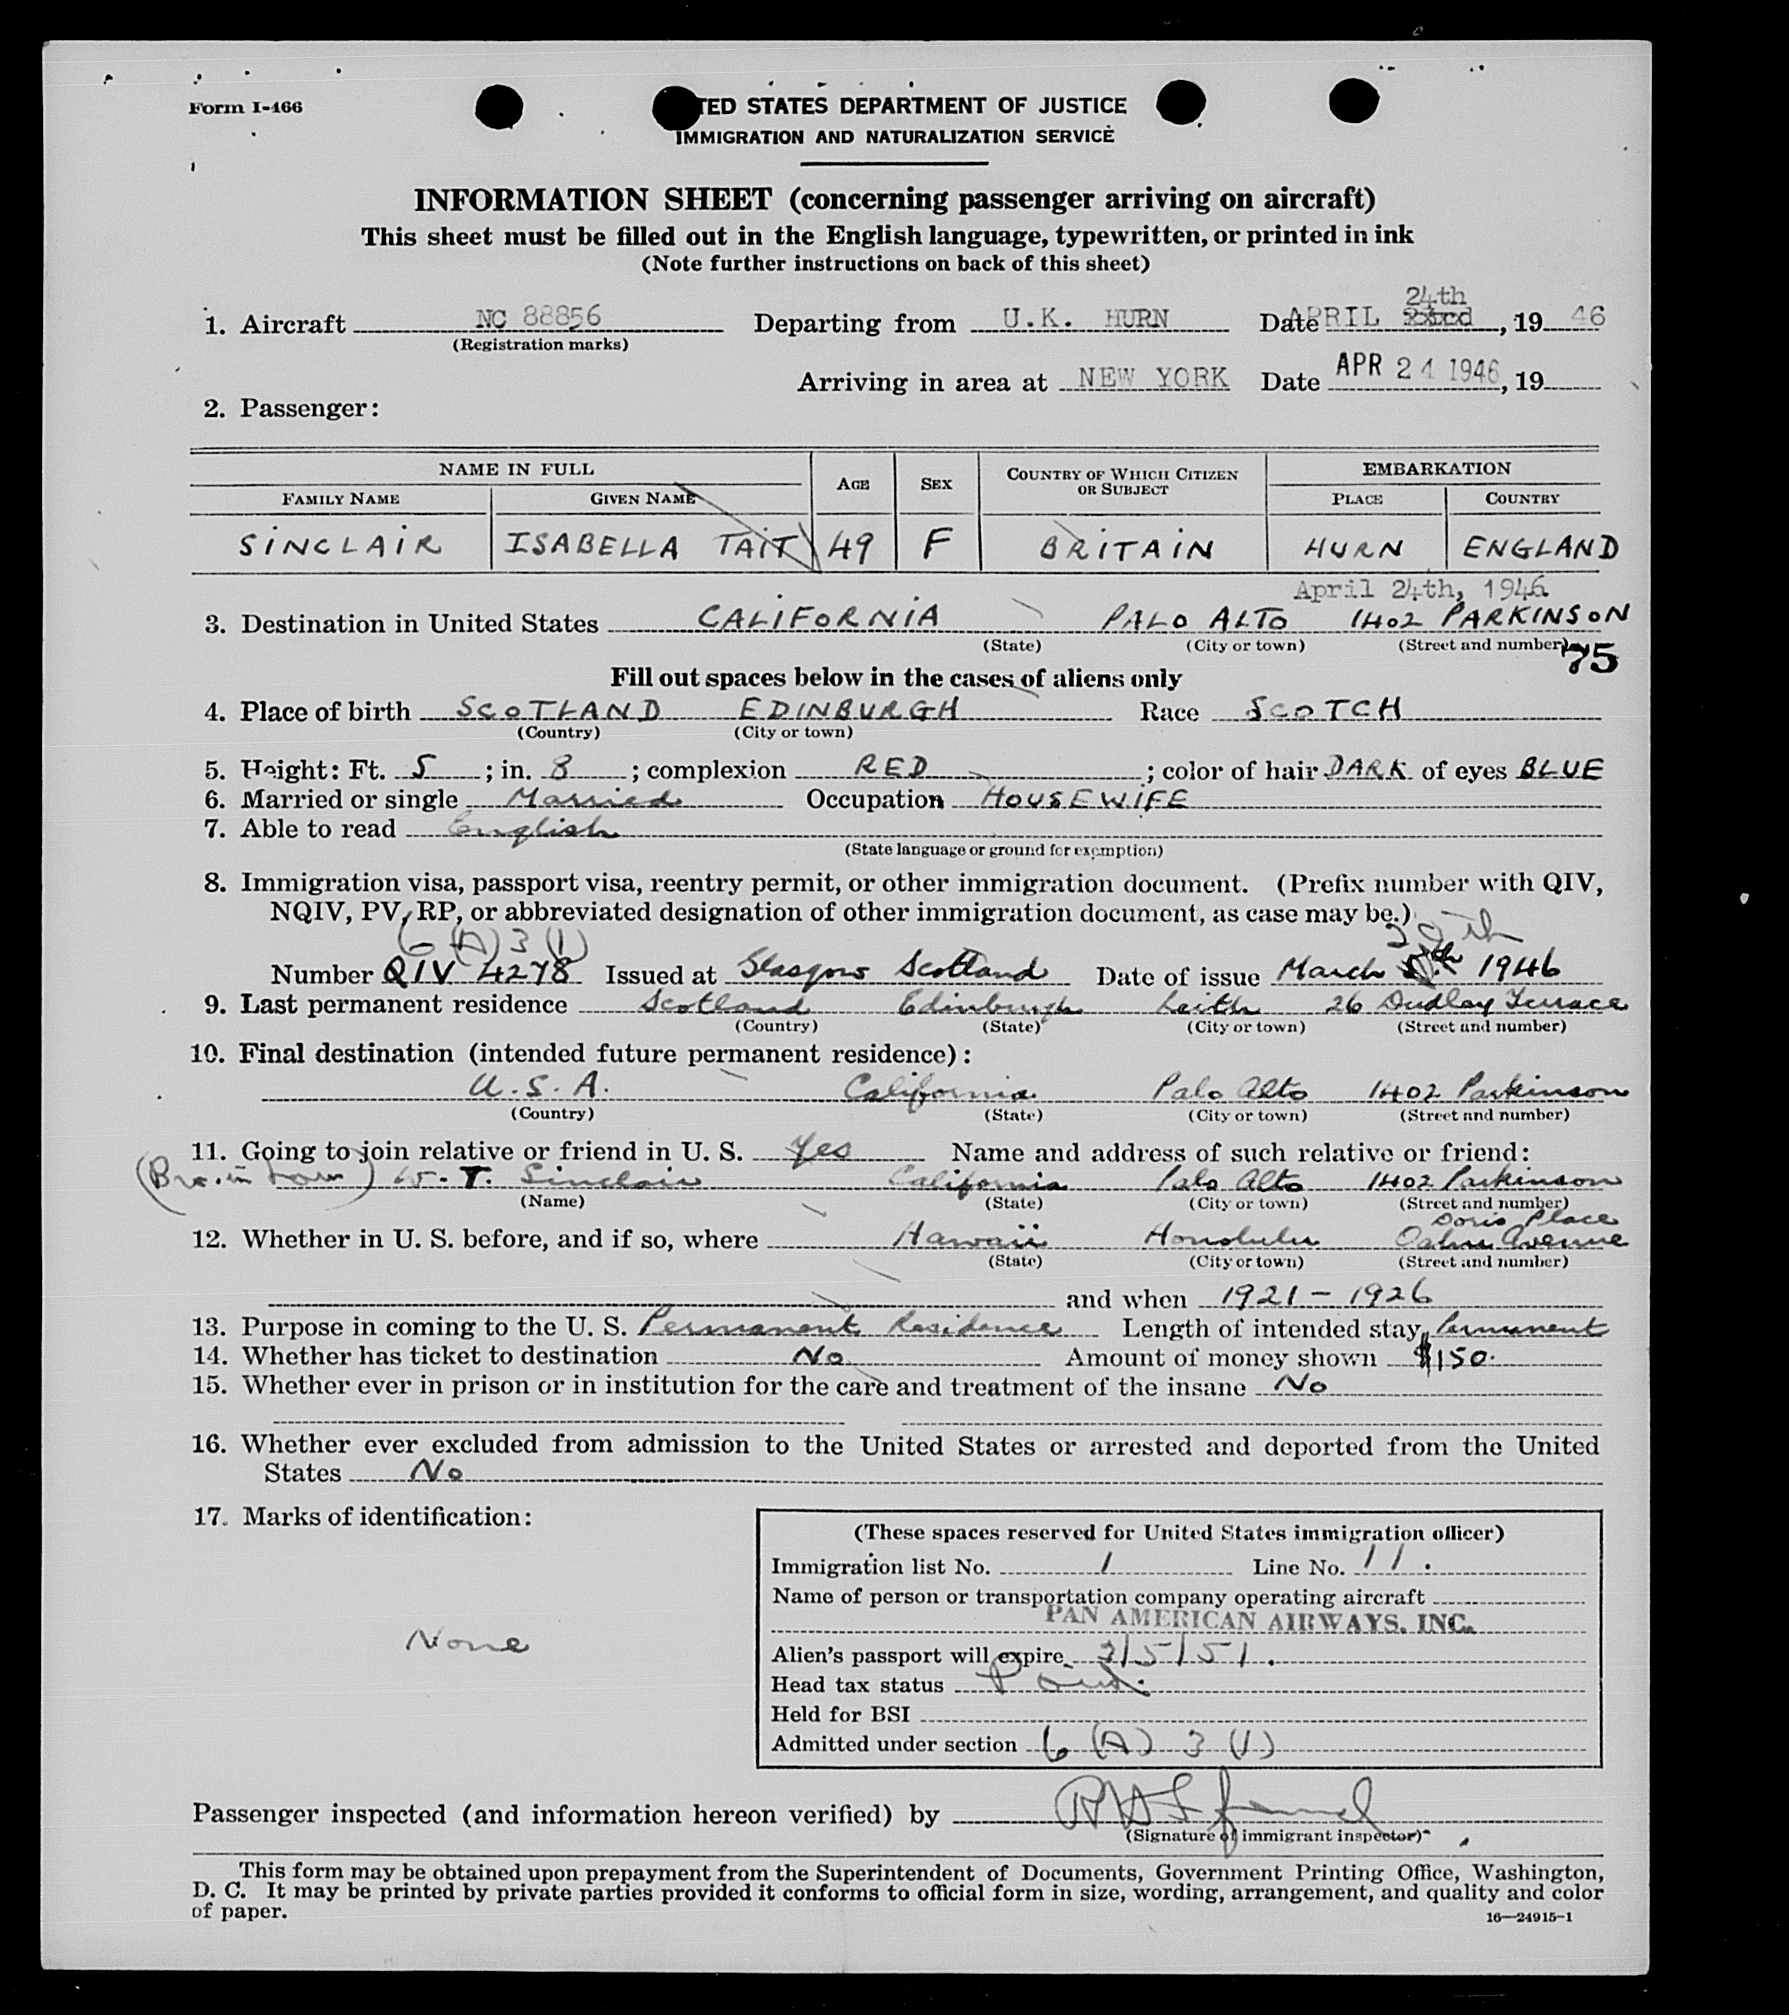 Form I-466
TED STATES DEPARTMENT OF JUSTICE
IMMIGRATION AND NATURALIZATION SERVICE
INFORMATION SHEET (concerning passenger arriving on aircraft)
This sheet must be filled out in the English language, typewritten, or printed in ink
(Note further instructions on back of this sheet)
24th
1. Aircraft NC 88856 Departing from U.K. HURN Date APRIL 23rd, 19 46
(Registration marks)
Arriving in area at NEW YORK Date APR 24 1946, 19
2. Passenger:
NAME IN FULL AGE SEX COUNTRY OF WHICH CITIZEN OR SUBJECT EMBARKATION
FAMILY NAME GIVEN NAME PLACE COUNTRY
SINCLAIR ISABELLA TAIT 49 F BRITAIN HURN ENGLAND
April 24th, 1946
3. Destination in United States CALIFORNIA PALO ALTO 1402 PARKINSON
(State) (City or town) (Street and number)
75
Fill out spaces below in the cases of aliens only
4. Place of birth SCOTLAND EDINBURGH Race SCOTCH
(Country) (City or town)
5. Height: Ft. 5; in. 8; complexion RED; color of hair DARK of eyes BLUE
6. Married or single Married Occupation HOUSEWIFE
7. Able to read English
(State language or ground for exemption)
8. Immigration visa, passport visa, reentry permit, or other immigration document. (Prefix number with QIV,
NQIV, PV, RP, or abbreviated designation of other immigration document, as case may be.)
6 (A) 3 (1)
Number QIV 4278 Issued at Glasgow Scotland Date of issue March 1946
9. Last permanent residence Scotland Edinburgh Leith 26 Dudley Terrace
(Country) (State) (City or town) (Street and number)
10. Final destination (intended future permanent residence):
U.S.A. California Palo Alto 1402 Parkinson
(Country) (State) (City or town) (Street and number)
11. Going to join relative or friend in U. S. Yes Name and address of such relative or friend:
(Bro. in law) W. T. Sinclair California Palo Alto 1402 Parkinson
(Name) (State) (City or town) (Street and number)
Doris Place
12. Whether in U. S. before, and if so, where Hawaii Honolulu Oahu Avenue
(State) (City or town) (Street and number)
and when 1921 - 1926
13. Purpose in coming to the U. S. Permanent Residence Length of intended stay Permanent
14. Whether has ticket to destination No Amount of money shown $150.
15. Whether ever in prison or in institution for the care and treatment of the insane No
16. Whether ever excluded from admission to the United States or arrested and deported from the United
States No
17. Marks of identification:
None
(These spaces reserved for United States immigration officer)
Immigration list No. 1 Line No. 11.
Name of person or transportation company operating aircraft
PAN AMERICAN AIRWAYS, INC.
Alien's passport will expire 3/5/51.
Head tax status Paid.
Held for BSI
Admitted under section 6 (A) 3 (1)
Passenger inspected (and information hereon verified) by
(Signature of immigrant inspector)
This form may be obtained upon prepayment from the Superintendent of Documents, Government Printing Office, Washington,
D. C. It may be printed by private parties provided it conforms to official form in size, wording, arrangement, and quality and color
of paper.
16—24915-1